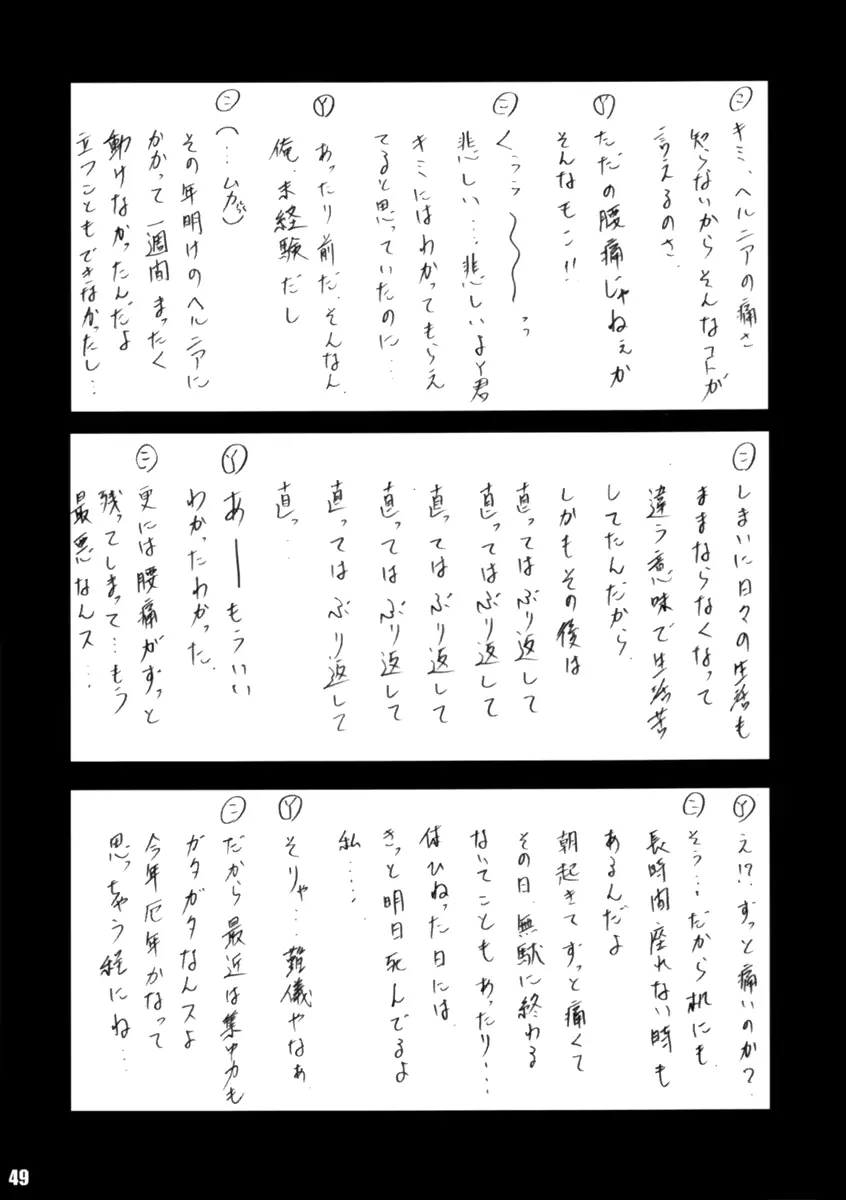 ㋥ キミ、ヘルニアの痛さ
知らないからそんなコトが
言えるのさ.
Ⓨ ただの腰痛じゃねぇか
そんなもン!!
㋥ くぅぅ〜〜〜っっ
悲しい…悲しいよY君
キミにはわかってもらえ
てると思っていたのに…
Ⓨ あったり前だ.そんなん.
俺.未経験だし
㋥ (…ムカッ)
その年明けのヘルニアに
かかって一週間まったく
動けなかったんだよ
立つこともできなかったし…
㋥ しまいに日々の生活も
ままならなくなって
違う意味で生活苦
してたんだから.
しかもその後は
直ってはぶり返して
直ってはぶり返して
直ってはぶり返して
直ってはぶり返して
直ってはぶり返して
直っ…
Ⓨ あーもういい
わかったわかった.
㋥ 更には腰痛がずっと
残ってしまって…もう
最悪なんス…
Ⓨ え!?ずっと痛いのか?
㋥ そう…だから机にも
長時間座れない時も
あるんだよ
朝起きてずっと痛くて
その日.無駄に終わる
ないてこともあったり…
体ひねった日には
きっと明日死んでるよ
私…
Ⓨ そりゃ…難儀やなぁ
㋥ だから最近は集中力も
ガタガタなんスよ
今年厄年かなって
思っちゃう程にね…
49